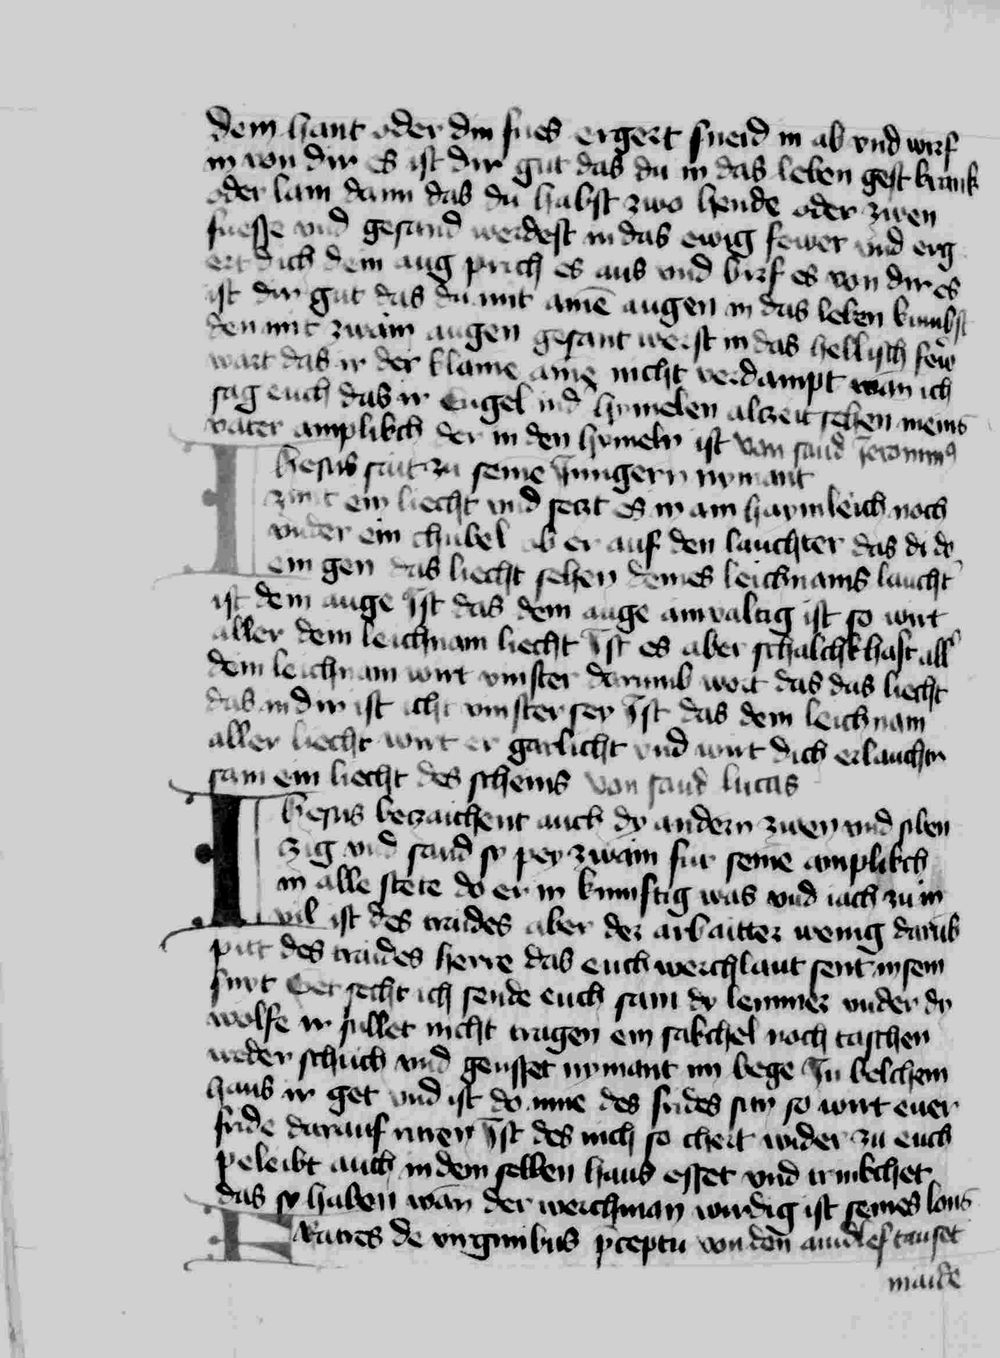 dein hant oder din fues ergert sneid in ab vnd wirf
in von dir es ist dir gut das du in das leben gest krank
oder lam dann das du habst zwo hende oder zwen
fuesse vnd gesand werdest in das ewig fewer vnd erg
ert dich dein aug prich es aus vnd birf es von dir es
ist dir gut das du mit aime augen in das leben kumbst
den mit zwain augen gesant werst in das hellisch fewr
wart das ir der klaine aine nicht verdampt wan ich
sag euch das ir Engel in d hymelen alczeit sehen meins
vater amplikch der in den hymeln ist von sand Jeronimus
Jhesus sait zu seine Jungern nymant
zunt ein liecht vnd seczt es in ain haymleich noch
vnder ein chubel ob er auf den lauchter das di do
ein gen das liecht sehen deines leichnams laucht
ist dein auge Ist das dein auge ainvaltig ist so wirt
aller dein leichnam liecht Ist es aber schalchkhaft all
dein leichnam wirt vinster darumb wort das das liecht
das in dir ist icht vinster sey Ist das dein leichnam
aller liecht wirt er gar licht vnd wirt dich erlauchtn
sam ein liecht des scheins von sand lucas
Jhesus beczaichent auch dy andern zwen vnd siben
czig vnd sand sy pey zwain fur seine amplikch
in alle stete do er in kunftig was vnd iach zu in
vil ist des traides aber der arbaitter wenig darub
pitt des traides herre das euch werchlaut sent in sein
snyt Get secht ich sende euch sam dy lemmer vnder dy
wolfe ir sullet nicht tragen ein sakchel noch taschen
weder schuch vnd grusset nymant im bege In belchem
haus ir get vnd ist do inne des frides sun so wirt euer
fride darauf ruen Ist des nich so chert wider zu euch
peleibt auch in dem selben haus esset vnd trinkchet
das sy haben wan der werchman wirdig ist seines lons
Fratres de virginibus pceptu von den aindlef tauset
maide